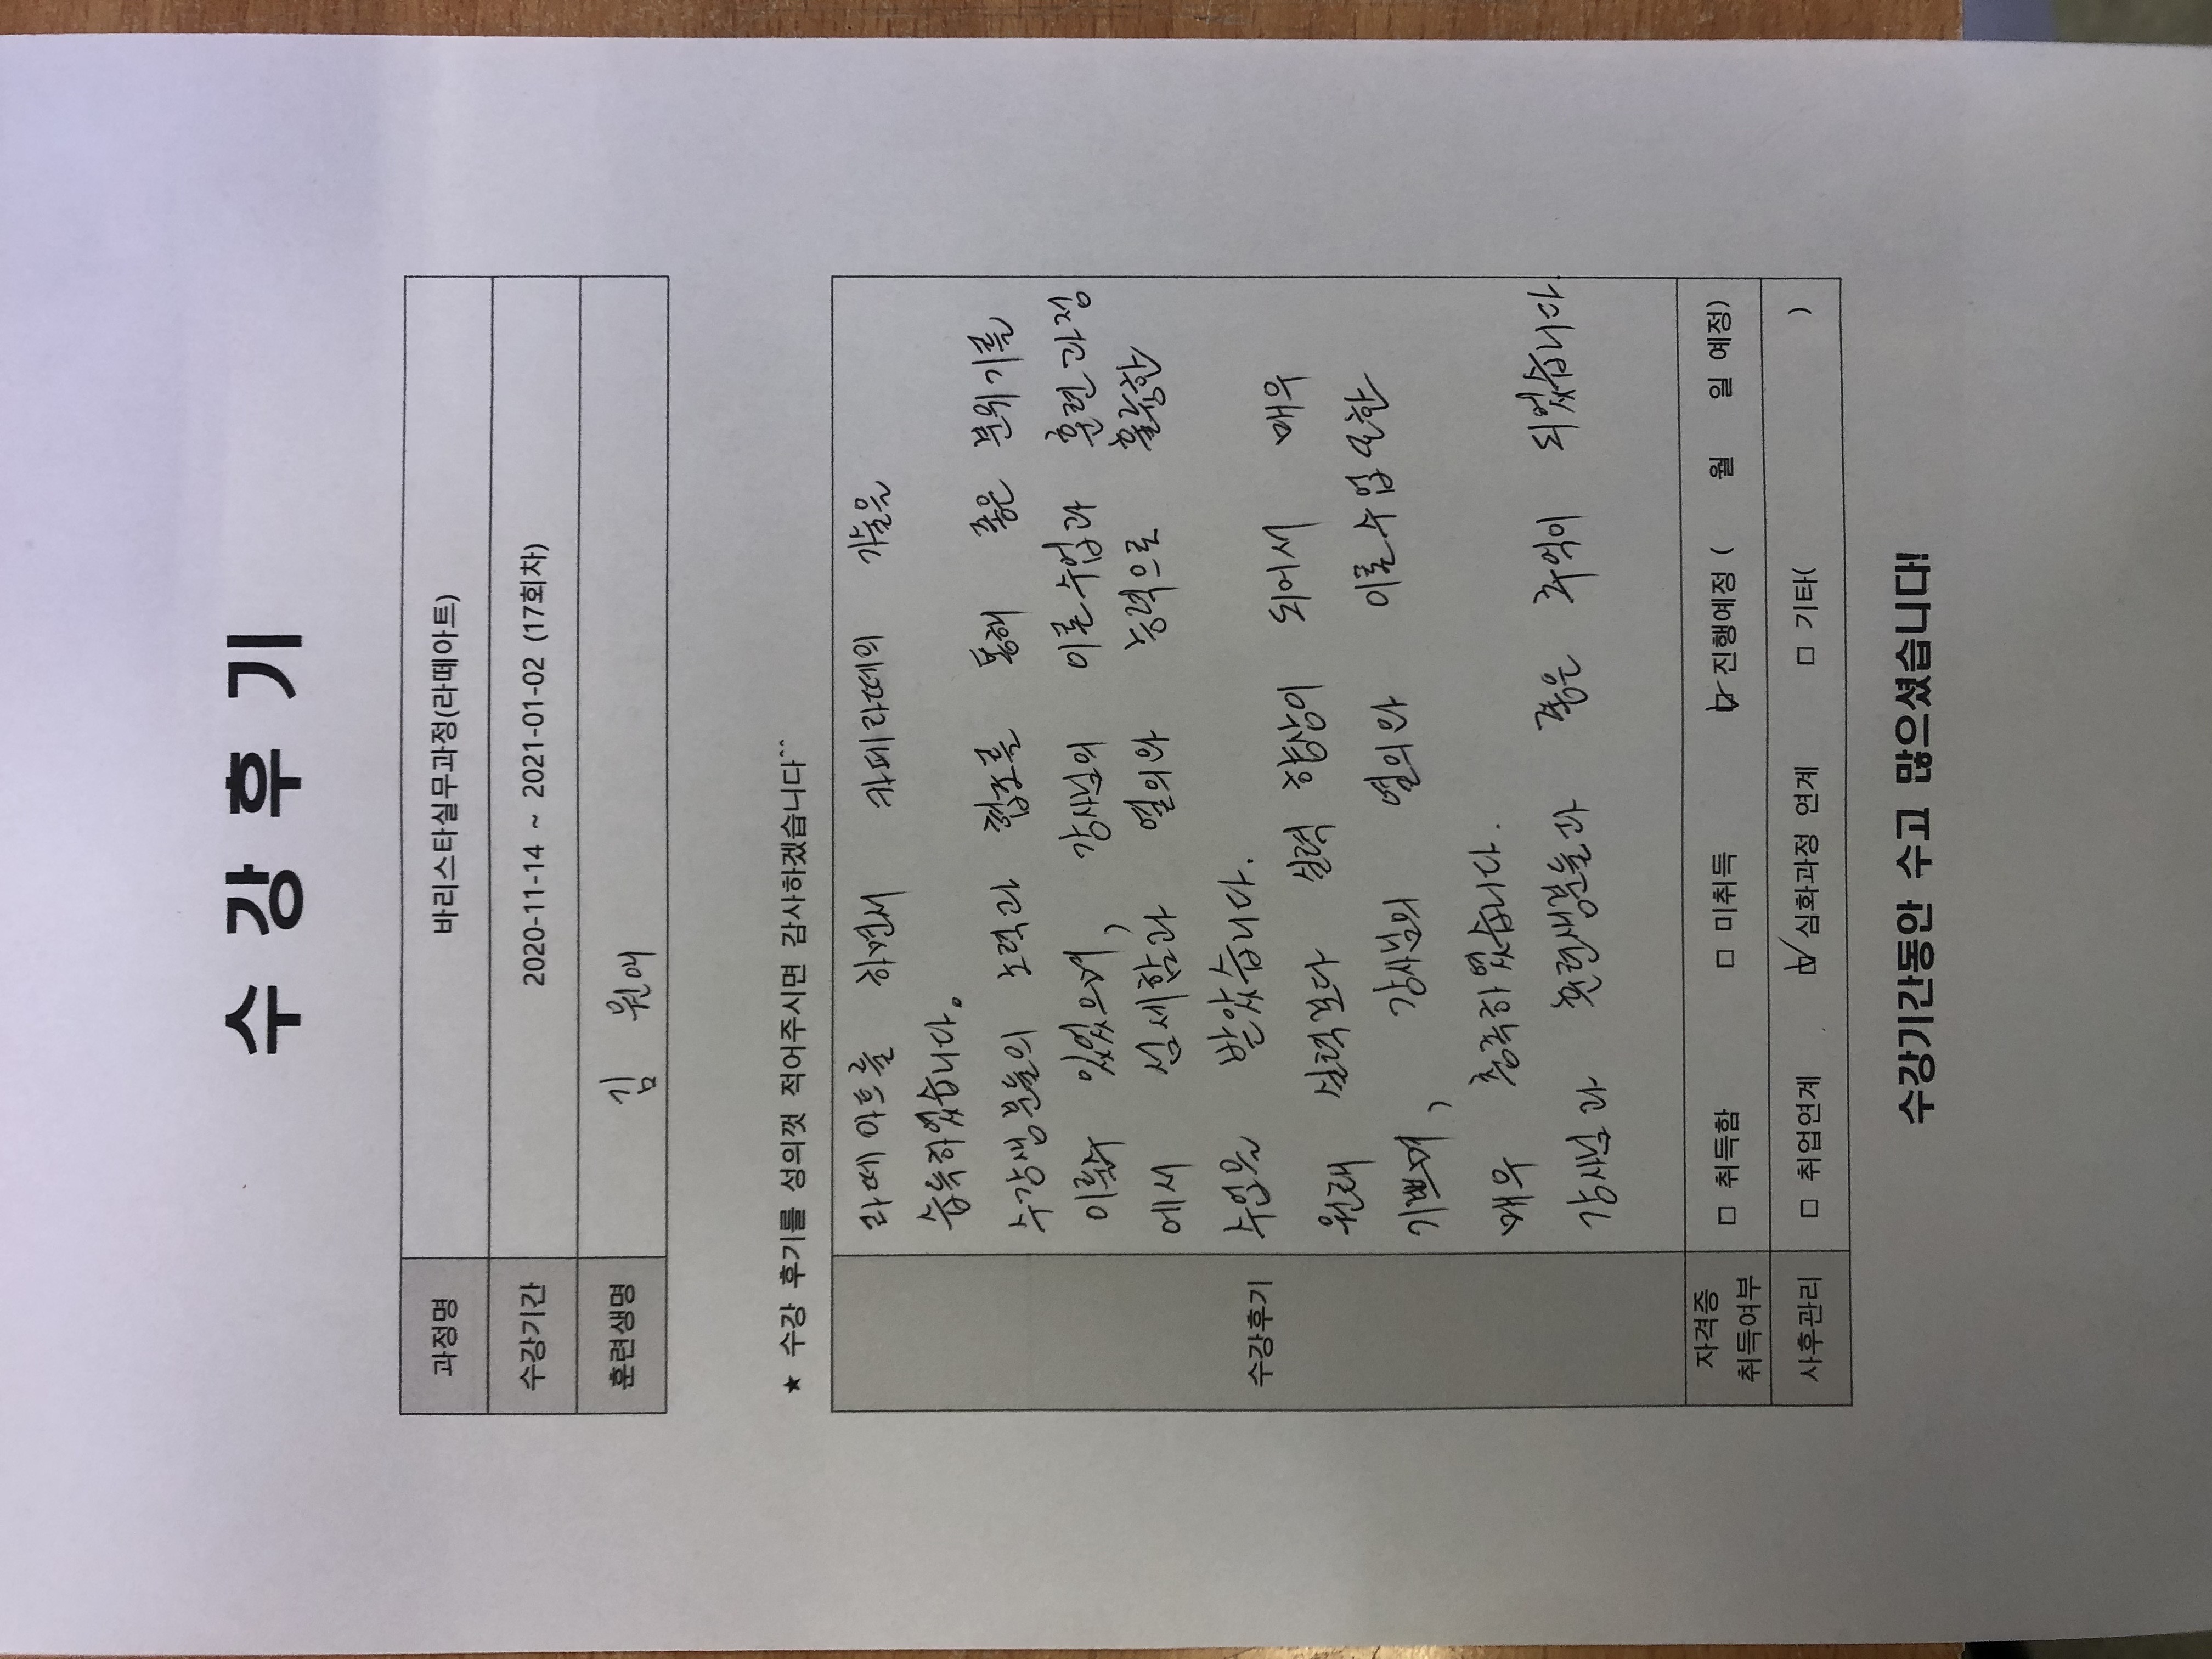 수 강 후 기
과정명 바리스타실무과정(라떼아트)
수강기간 2020-11-14 ~ 2021-01-02 (17회차)
훈련생명 김 원애
★ 수강 후기를 성의껏 적어주시면 감사하겠습니다^^
수강후기
라떼아트를 하면서 카페라떼의 기능을
습득하였습니다.
수강생분들의 노력과 협조를 통해 좋은 분위기를
있었으며, 강사님의 이론수업과 훈련과정
에서 섬세함과 열의와 능력으로 훌륭한
수업을 받았습니다.
원래 실력보다 실력 향상이 되어서 매우
기쁘며, 강사님의 열의와 이론수업 또한
매우 충족하였습니다.
강사님과 훈련생분들과 좋은 추억이 되었습니다
자격증 취득여부 □ 취득함 □ 미취득 ☑ 진행예정 ( 월 일 예정)
사후관리 □ 취업연계 ☑ 심화과정 연계 □ 기타( )
수강기간동안 수고 많으셨습니다!